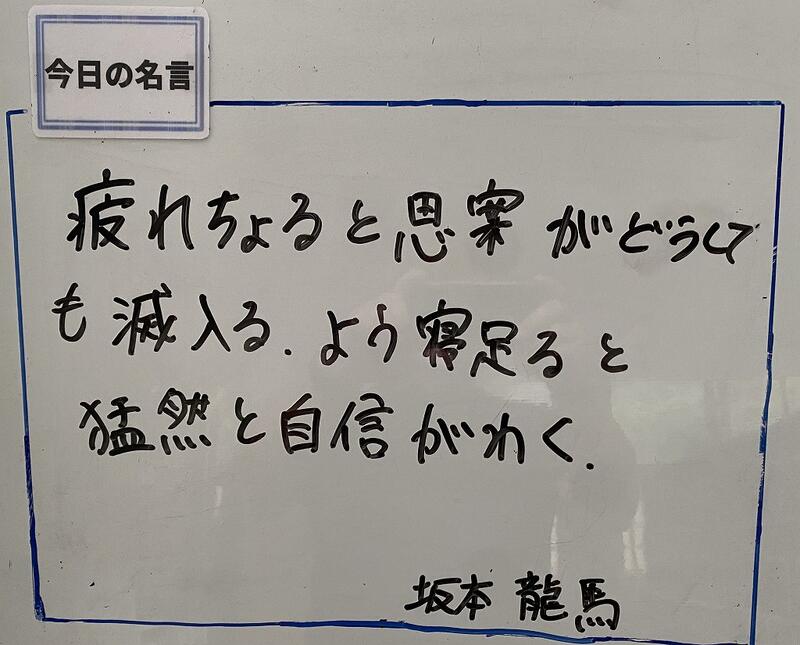 今日の名言
疲れちょると思案がどうして
も滅入る.よう寝足ると
猛然と自信がわく.
坂本龍馬